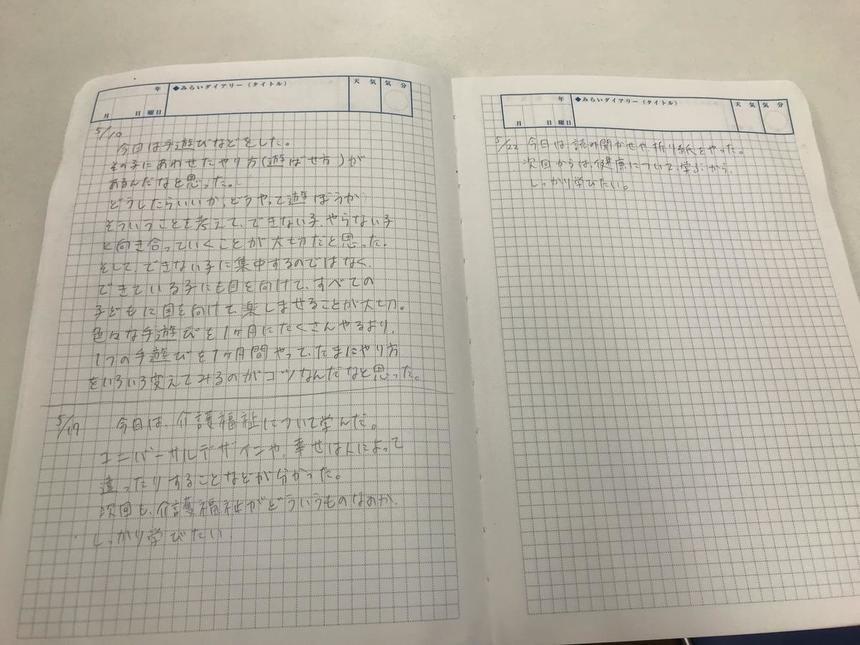 年
月 日 曜日
◆みらいダイアリー（タイトル）
天 気
気 分
5/10
今回は手遊びなどをした。
その子にあわせたやり方(遊ばせ方)が
あるんだなと思った。
どうしたらいいか、どうやって遊ぼうか
そういうことを考えて、できない子、やらない子
と向き合っていくことが大切だと思った。
そして、できない子に集中するのではなく、
できている子にも目を向けて、すべての
子どもに目を向けて楽しませることが大切。
色々な手遊びを1ヶ月にたくさんやるより、
1つの手遊びを1ヶ月間やって、たまにやり方
をいろいろ変えてみるのがコツなんだなと思った。
5/17
今日は、介護福祉について学んだ。
ユニバーサルデザインや、幸せは人によって
違ったりすることなどが分かった。
次回も、介護福祉がどういうものなのか、
しっかり学びたい
年
月 日 曜日
◆みらいダイアリー（タイトル）
天 気
気 分
今日は、読み聞かせや、折り紙をやった。
次回からは、健康について、学ぶから、
しっかり学びたい。